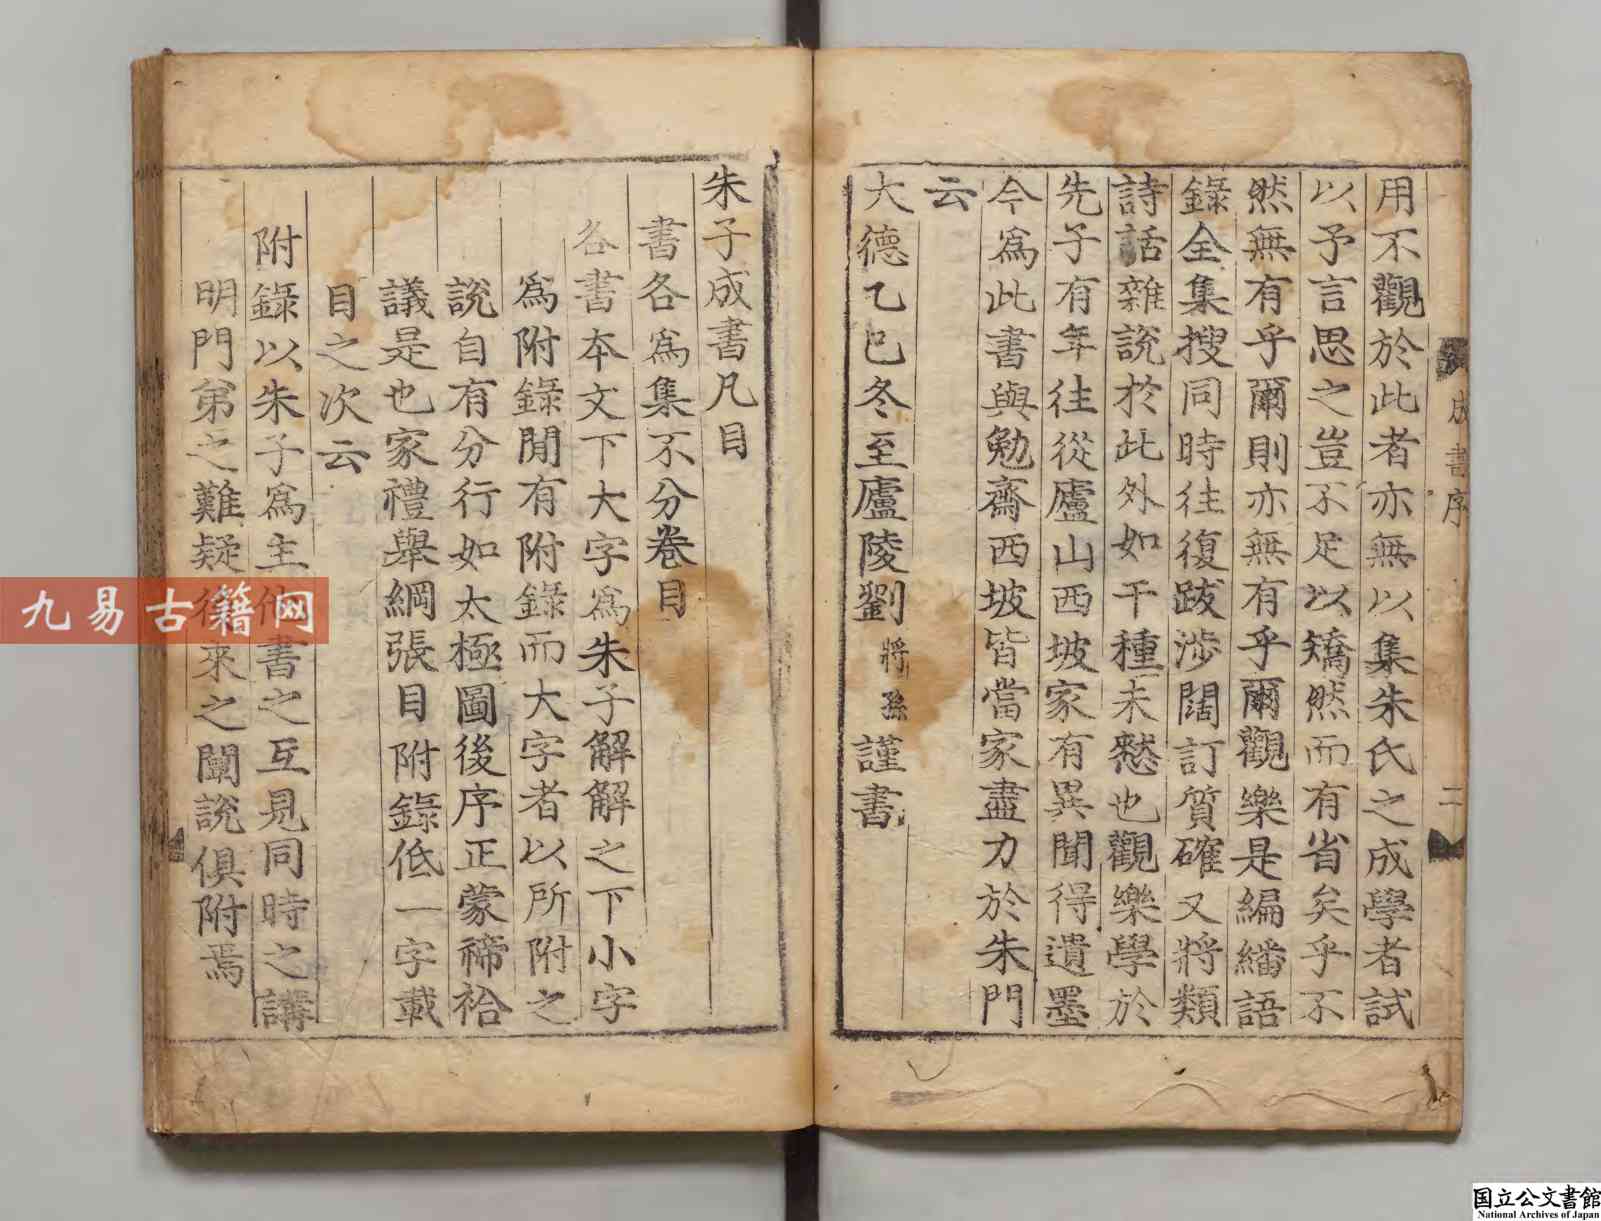 用不觀於此者亦無以集朱氏之成學者試
以予言思之豈不足以矯然而有省矣乎不
然無有乎爾則亦無有乎爾觀樂是編繙語
錄全集搜同時往復跋涉闊訂質確又將類
詩話雜說於此外如干種未憖也觀樂學於
先子有年往從廬山西坡家有異聞得遺墨
今爲此書與勉齋西坡皆當家盡力於朱門
云
大德乙巳冬至廬陵劉將孫謹書
成書序
二
朱子成書凡目
書各爲集不分卷目
各書本文下大字爲朱子解解之下小字
爲附錄閒有附錄而大字者以所附之
說自有分行如太極圖後序正蒙禘祫
議是也家禮舉綱張目附錄低一字載
目之次云
附錄以朱子爲主他書之互見同時之講
明門弟之難疑往來之闡說俱附焉
九易古籍网
国立公文書館
National Archives of Japan